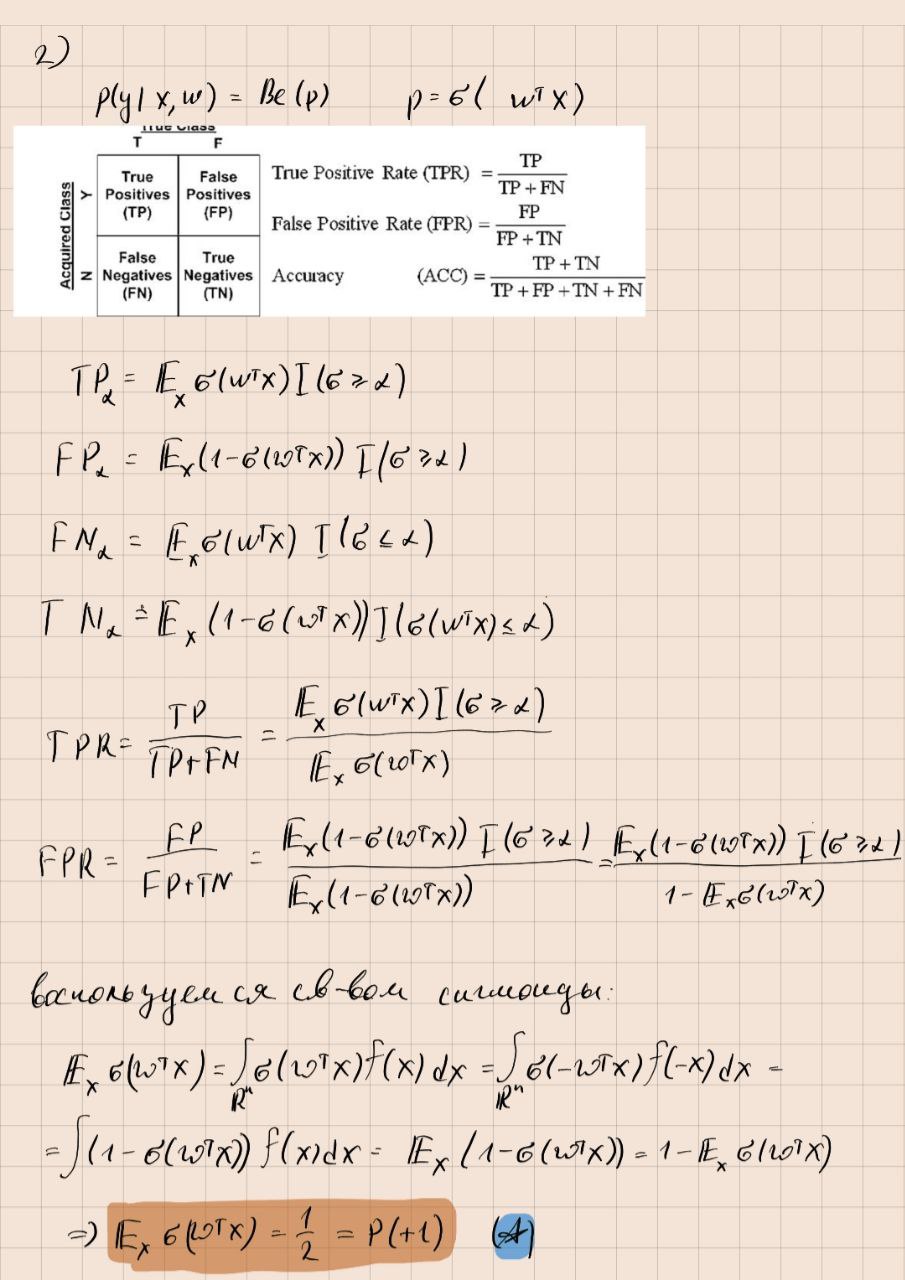 2)
p(y | x, w) = Be (p)    p = σ( wᵀx)
True Class
T F
Acquired Class
Y N
True Positives (TP)
False Positives (FP)
False Negatives (FN)
True Negatives (TN)
True Positive Rate (TPR) = TP / (TP + FN)
False Positive Rate (FPR) = FP / (FP + TN)
Accuracy (ACC) = (TP + TN) / (TP + FP + TN + FN)
TP_α = 𝔼_x σ(wᵀx) I(σ ⩾ α)
FP_α = 𝔼_x (1-σ(wᵀx)) I(σ ⩾ α)
FN_α = 𝔼_x σ(wᵀx) I(σ ≤ α)
TN_α = 𝔼_x (1-σ(wᵀx)) I(σ(wᵀx) ≤ α)
TPR = TP / (TP+FN) = 𝔼_x σ(wᵀx) I(σ ⩾ α) / 𝔼_x σ(wᵀx)
FPR = FP / (FP+TN) = 𝔼_x (1-σ(wᵀx)) I(σ ⩾ α) / 𝔼_x (1-σ(wᵀx)) = 𝔼_x (1-σ(wᵀx)) I(σ ⩾ α) / (1 - 𝔼_x σ(wᵀx))
воспользуемся св-вом сигмоиды:
𝔼_x σ(wᵀx) = ∫_ℝⁿ σ(wᵀx) f(x) dx = ∫_ℝⁿ σ(-wᵀx) f(-x) dx =
= ∫ (1-σ(wᵀx)) f(x) dx = 𝔼_x (1-σ(wᵀx)) = 1 - 𝔼_x σ(wᵀx)
⇒ 𝔼_x σ(wᵀx) = 1/2 = P(+1)